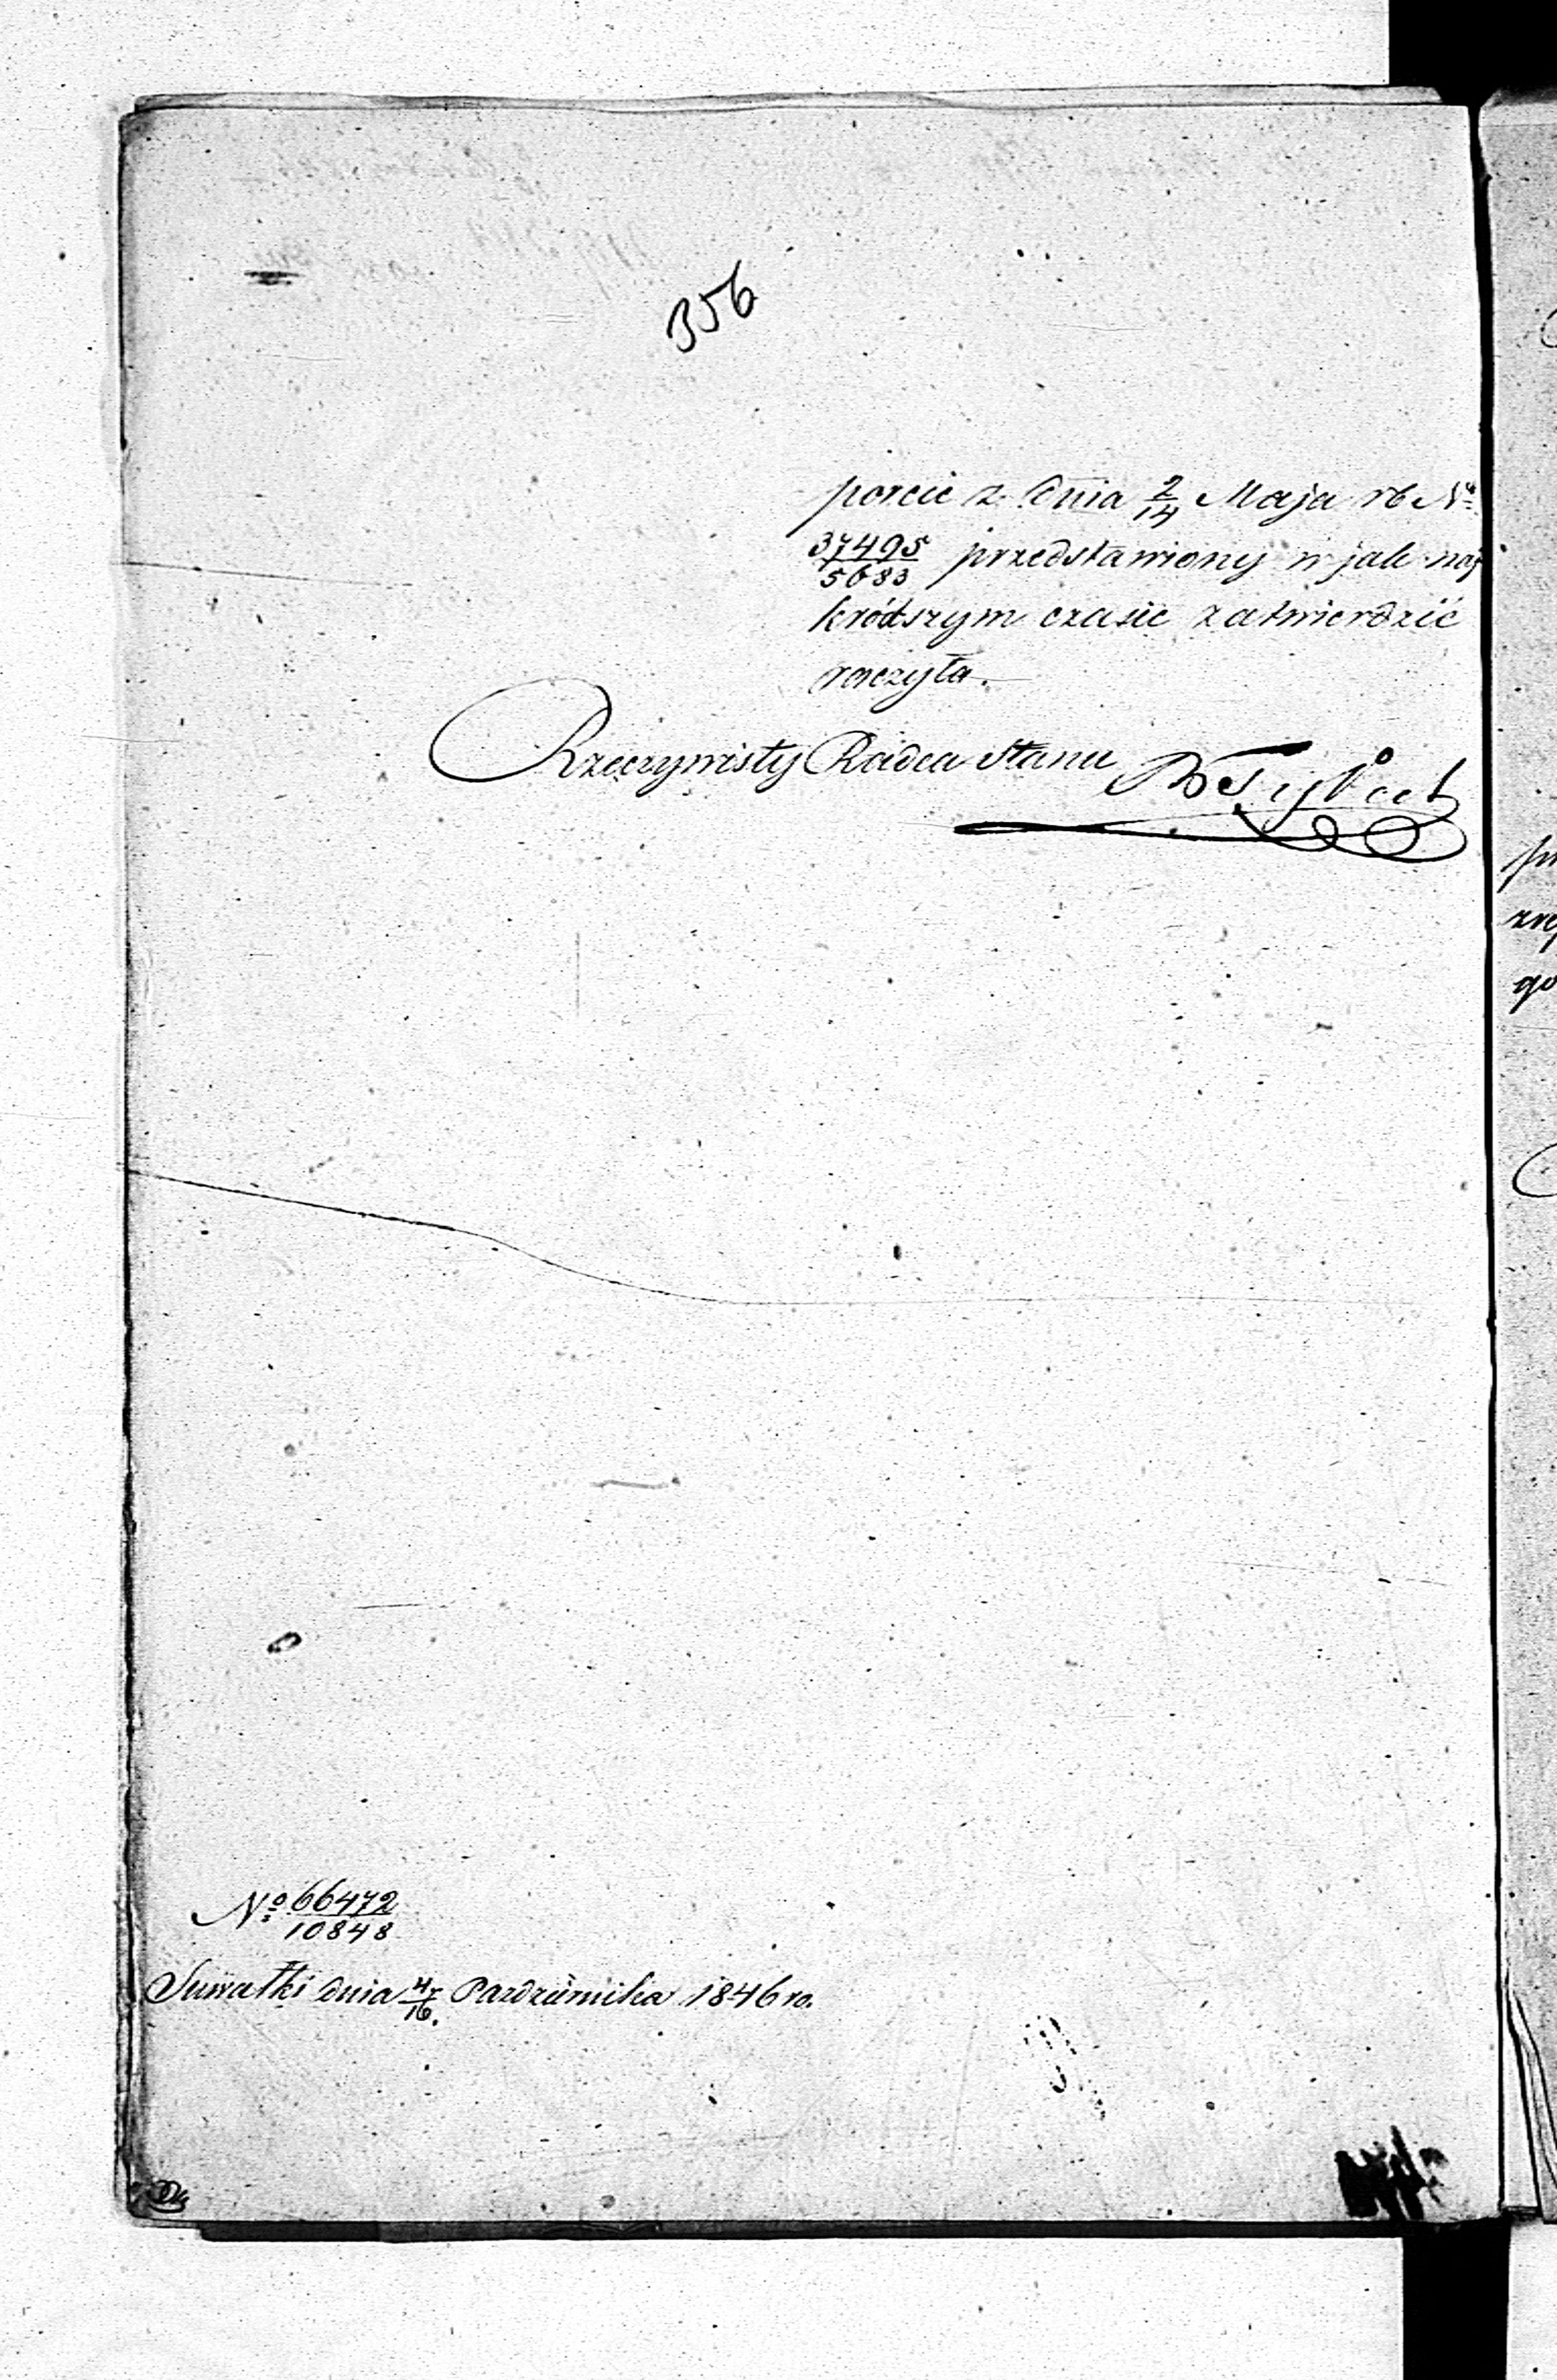 356
porcie z dnia 2/14 Maja rb No
37495/5683 przedstawiony w jak naj
krótszym czasie zatwierdzić
raczyła.
Rzeczywisty Radca Stanu
No 66472/10848
Suwałki dnia 4/16 Pazdziernika 1846 ro.